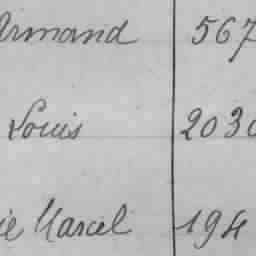 Armand 567
Louis 2030
ie Marcel 194